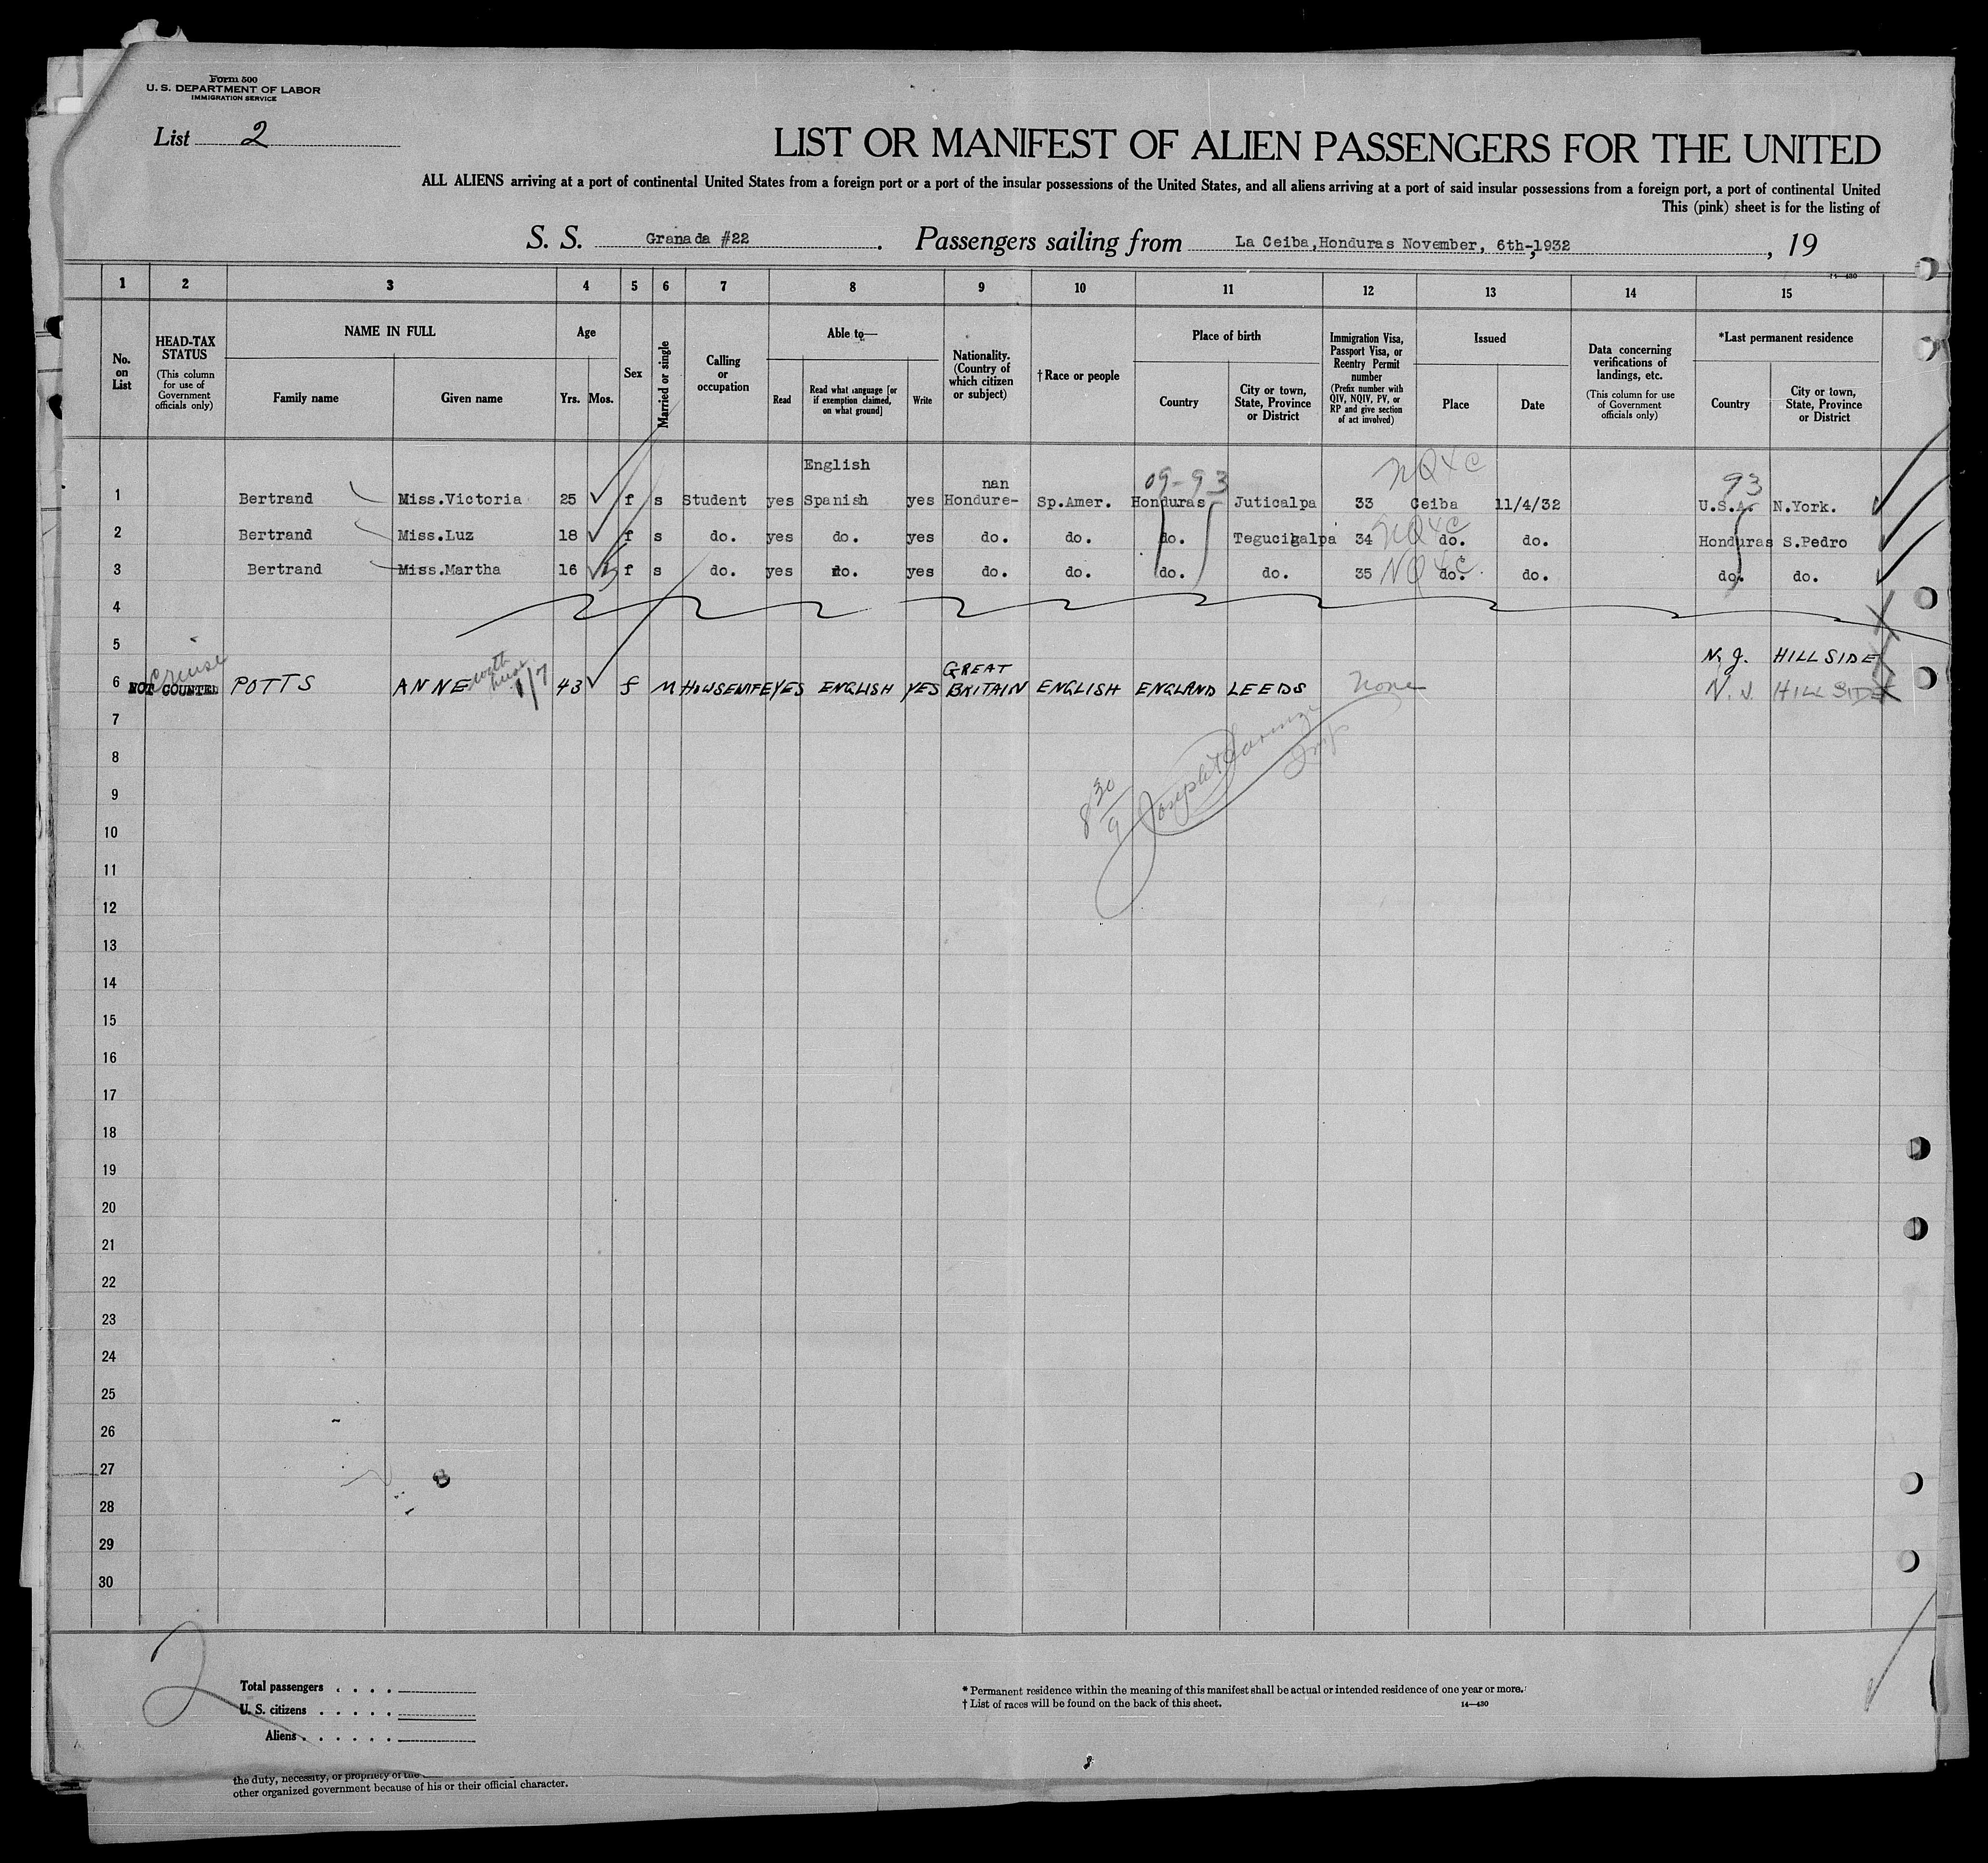 Form 500
U. S. DEPARTMENT OF LABOR
IMMIGRATION SERVICE
List 2
LIST OR MANIFEST OF ALIEN PASSENGERS FOR THE UNITED
ALL ALIENS arriving at a port of continental United States from a foreign port or a port of the insular possessions of the United States, and all aliens arriving at a port of said insular possessions from a foreign port, a port of continental United
This (pink) sheet is for the listing of
S. S. Granada #22. Passengers sailing from La Ceiba, Honduras November, 6th-1932, 19
14—430
1 2 3 4 5 6 7 8 9 10 11 12 13 14 15
No. on List
HEAD-TAX STATUS
(This column for use of Government officials only)
NAME IN FULL
Family name
Given name
Age
Yrs. Mos.
Sex
Married or single
Calling or occupation
Able to—
Read
Read what language [or if exemption claimed, on what ground]
Write
Nationality. (Country of which citizen or subject)
† Race or people
Place of birth
Country
City or town, State, Province or District
Immigration Visa, Passport Visa, or Reentry Permit number
(Prefix number with QIV, NQIV, PV, or RP and give section of act involved)
Issued
Place
Date
Data concerning verifications of landings, etc.
(This column for use of Government officials only)
*Last permanent residence
Country
City or town, State, Province or District
English nan 09-93 NQ4C 93
1 Bertrand Miss.Victoria 25 f s Student yes Spanish yes Hondure- Sp.Amer. Honduras Juticalpa 33 Ceiba 11/4/32 U.S.A. N.York.
2 Bertrand Miss.Luz 18 f s do. yes do. yes do. do. do. Tegucigalpa 34 NQ4C do. do. Honduras S.Pedro
3 Bertrand Miss.Martha 16 f s do. yes do. yes do. do. do. do. 35 NQ4C do. do. do. do.
4
5
cruise with GREAT N. J. HILLSIDE
6 NOT COUNTED POTTS ANNE 43 f M HOUSEWIFE YES ENGLISH YES BRITAIN ENGLISH ENGLAND LEEDS None N. J. HILLSIDE
7
8
9
10
11
12
13
14
15
16
17
18
19
20
21
22
23
24
25
26
27
28
29
30
8 30/9 Joseph
Insp
2
Total passengers
U. S. citizens
Aliens
* Permanent residence within the meaning of this manifest shall be actual or intended residence of one year or more.
† List of races will be found on the back of this sheet.
14—430
the duty, necessity, or propriety of the
other organized government because of his or their official character.